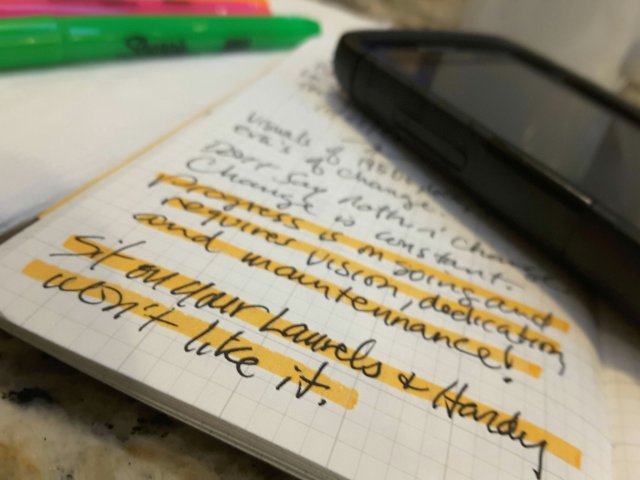 Sharpie
Visuals of
era's of change.
Don't say nothin' changes
Change is constant.
Progress is ongoing and
requires vision, dedication
and maintennance!
Sit on your Laurels & Hardy
won't like it.